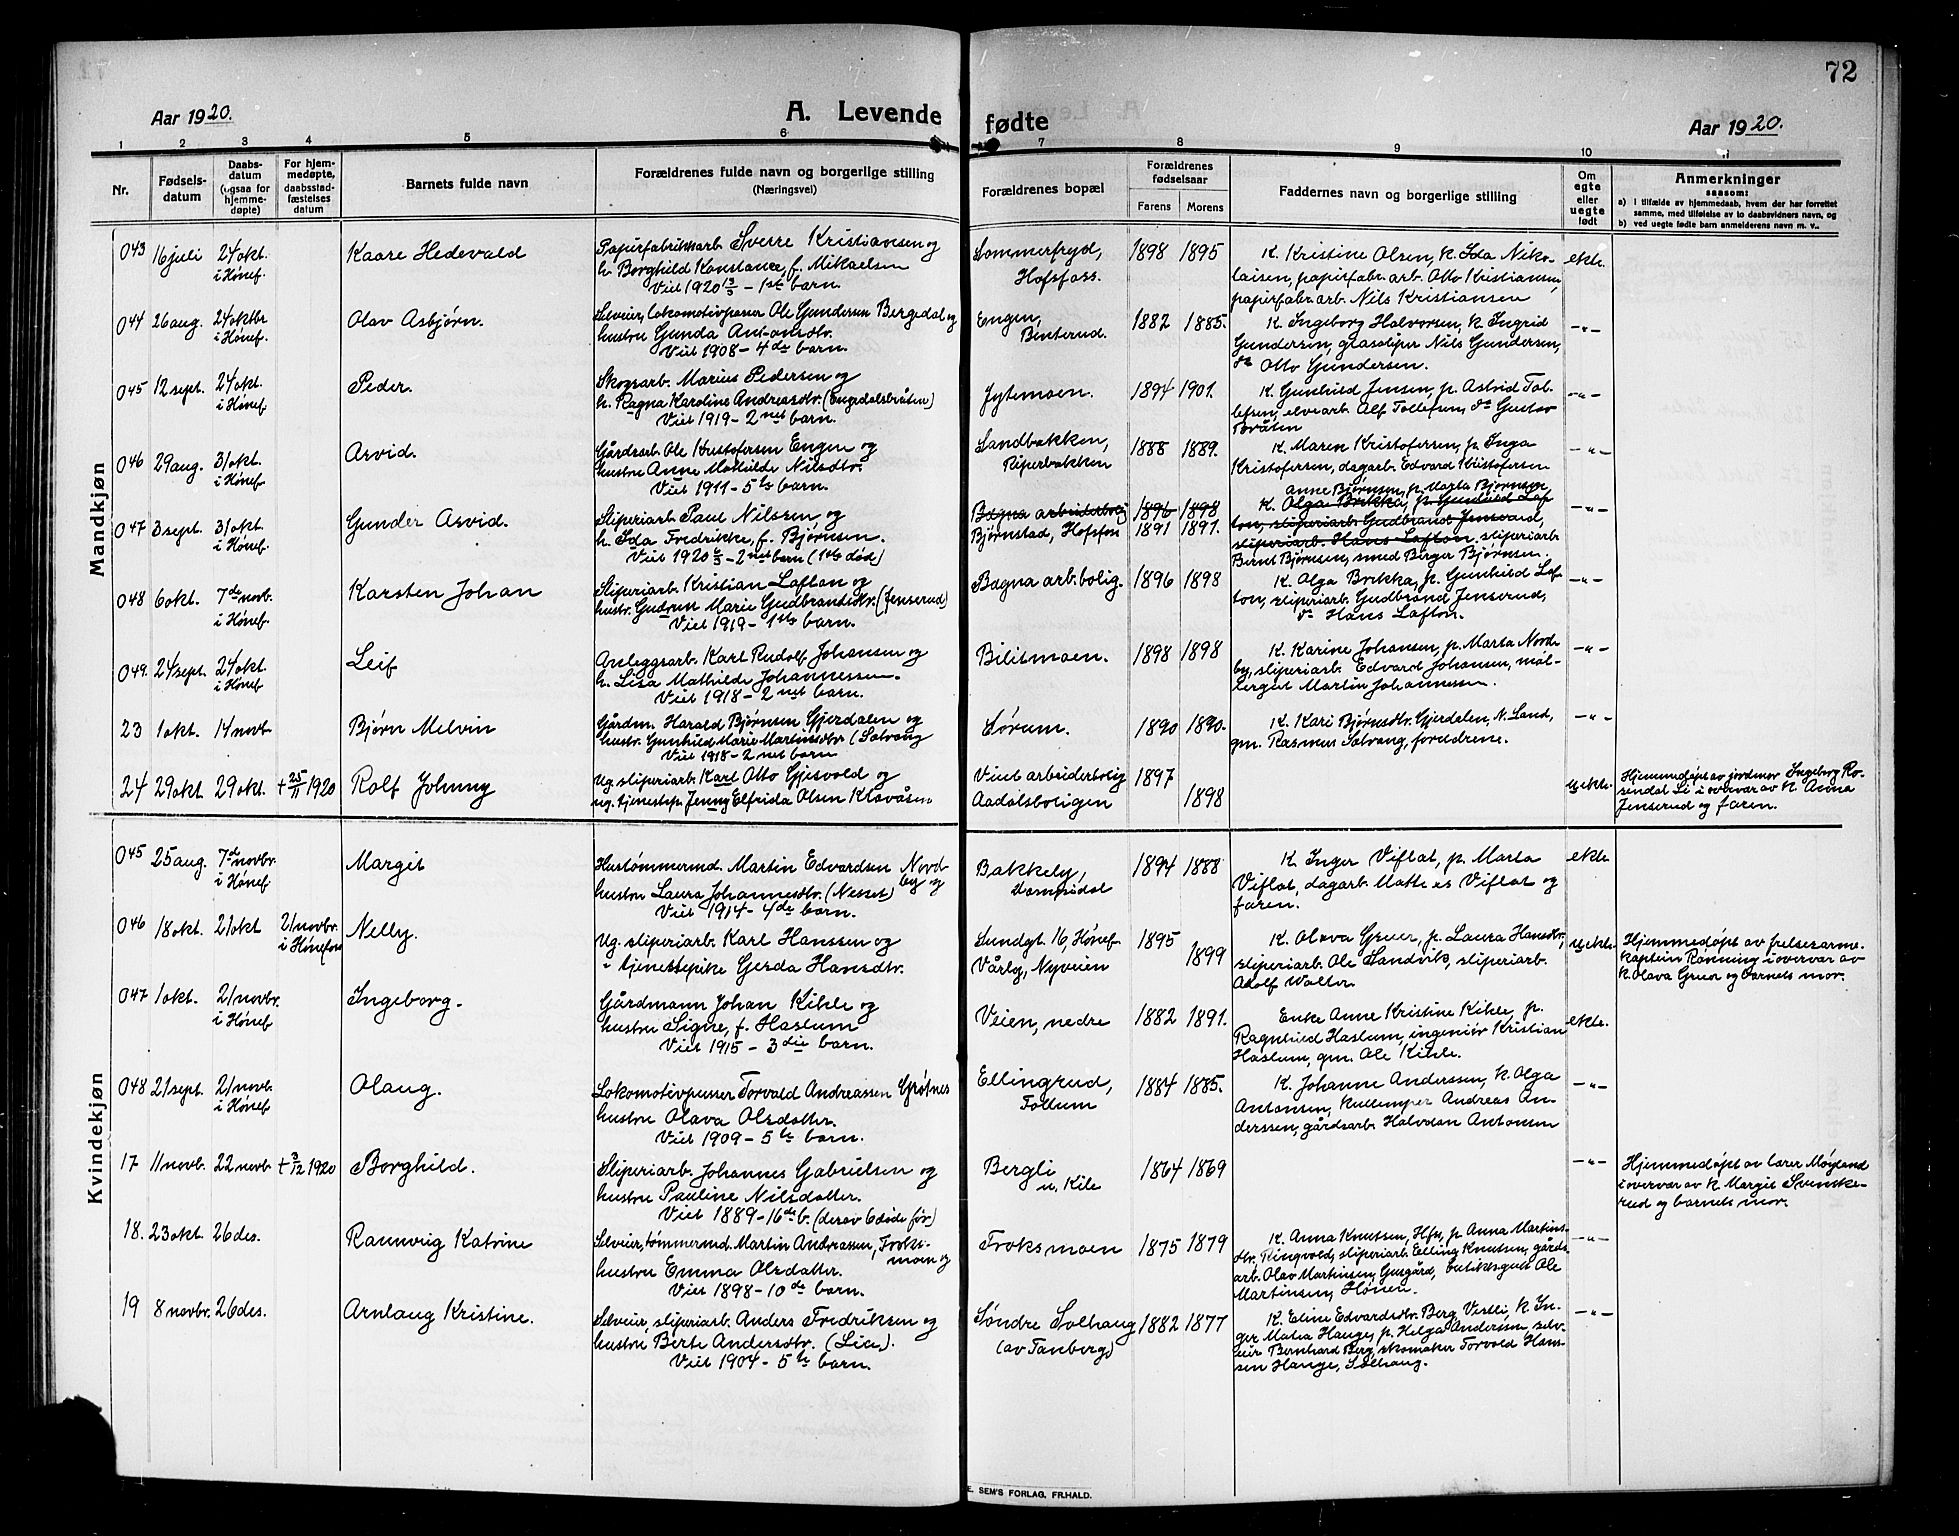 72
Aar 1920.
A. Levende fødte
Aar 1920.
1 2 3 4 5 6 7 8 9 10 11
Nr.
Fødsels-
datum
Daabs-
datum
(ogsaa for
hjemme-
døpte)
For hjem-
medøpte,
daabsstad-
fæstelses
datum
Barnets fulde navn
Forældrenes fulde navn og borgerlige stilling
(Næringsvei)
Forældrenes bopæl
Forældrenes
fødselsaar
Farens Morens
Faddernes navn og borgerlige stilling
Om
egte
eller
uegte
født
Anmerkninger
saasom:
a) i tilfælde av hjemmedaab, hvem der har forrettet
samme, med tilføielse av to daabsvidners navn, og
b) ved uegte fødte barn anmelderens navn m. v..
Mandkjøn
043 16 juli 24 okt. i Hønef. Kaare Hedevald
Papirfabrikkarb. Sverre Kristiansen og
h. Borghild Konstance, f. Mikaelsen
Viet 1920 3/3 - 1ste barn.
Sommerfryd,
Hofsfoss.
1898 1895
K. Kristine Olsen, k. Ida Niko-
laisen, papirfabr. arb. Otto Kristiansen,
papirfabr. arb. Nils Kristiansen
ekte.
044 26 aug. 24 oktbr i Hønef. Olav Asbjørn.
Selveier, lokomotivpusser Ole Gundersen Bergedal og
hustru Gunda Antonsdtr.
Viet 1908 - 4de barn.
Engen,
Binterud.
1882 1885.
K. Ingeborg Halvorsen, k. Ingrid
Gundersen, glassliper Nils Gundersen,
do Otto Gundersen.
-"-
045 12 sept. 24 okt. i Hønef. Peder.
Skogsarb. Marius Pedersen og
h. Ragna Karoline Andreasdtr. (Engedalsbråten)
Viet 1919 - 2net barn.
Jytemoen.
1894 1901.
K. Gunhild Jensen, p. Astrid Tol-
lefsen, elvearb. Alf Tollefsen, do Gustav
Bråten
-"-
046 29 aug. 31 okt. i Hønef. Arvid.
Gårdsarb. Ole Kristofersen Engen og
hustru Anne Mathilde Nilsdtr.
Viet 1911 - 5te barn.
Sandbakken,
Piperbakken
1888 1889.
K. Maren Kristofersen, p. Inga
Kristofersen, dagarb. Edvard Kristofersen
-"-
047 3 sept. 31 okt. i Hønef. Gunder Arvid.
Sliperiarb. Paul Nilsen og
h. Ida Fredrikke, f. Bjørnsen.
Viet 1920 6/3 - 2net barn (1ste død)
Bægna arbeiderbolig
Bjørnstad, Hofsfoss
1896 1898
1891 1891.
Anne Bjørnsen, p. Marta Bjørnsen,
K. Olga Brekka, p. Gunhild Laf-
ton, sliperiarb. Gudbrand Jenserud,
sliperiarb. Hans Lafton, sliperiarb.
Bernt Bjørnsen, smed Berger Bjørnsen.
-"-
048 6 okt. 7de novb. i Hønef. Karsten Johan
Sliperiarb. Kristian Lafton og
hustr. Gudrun Marie Gudbrandsdtr. (Jenserud)
Viet 1919 - 1ste barn.
Bægna arb. bolig.
1896 1898
K. Olga Brekka, p. Gunhild Laf-
ton, sliperiarb. Gudbrand Jenserud,
do Hans Lafton.
-"-
049. 24 sept. 24 okt. i Hønef. Leif
Anleggsarb. Karl Rudolf Johansen og
h. Lisa Mathilde Johannessen.
Viet 1918 - 2net barn.
Bilitmoen.
1898 1898
K. Karine Johansen, p. Marta Nord-
by, sliperiarb. Edvard Johansen, mål-
Martin Johannessen.
-"-
23 1 okt. 14 novb. Bjørn Melvin
Gårdm. Harald Bjørnsen Gjerdalen og
hustr. Gunhild Marie Martinsdtr. (Solvang
Viet 1918 - 2net barn
Sørum.
1890 1890.
K. Kari Bjørnsdtr. Gjerdalen, N. Land,
gm. Rasmus Solvang, foreldrene.
-"-
24 29 okt. 29 okt. † 25/11 1920 Rolf Johnny
Ug. sliperiarb. Karl Otto Gjesvold og
ug. tjenestep. Jenny Elfrida Olsen Klavåsen
Viul arbeiderbolig
Aadalsboligen
1897
1898
uekte.
Hjemmedøpt av jordmor Ingeborg Ro-
sendal Li i overvær av k. Anna
Jenserud og faren.
Kvindekjøn
045 25 aug. 7de novbr. i Hønef. Margit
Hustømmermd. Martin Edvardsen Nord-
by og
hustru Laura Johannesdtr. (Nesset)
Viet 1914 - 4de barn.
Bakkely,
Somdal
1894 1888
K. Inger Viflat, p. Marta
Viflat, dagarb. Mattæs Viflat og
faren.
ekte
046 18 okt. 21 okt 21 novbr. i Hønefoss Nelly.
Ug. sliperiarb. Karl Hanssen og
" tjenestepike Gerda Hansdtr.
Sundgt. 16, Hønef.
Vårly, Nyveien
1895
1899
K. Olava Gruer, p. Laura Hansdtr,
sliperiarb. Ole Sandvik, sliperiarb.
Adolf Waller.
uekte.
Hjemmedøpt av frelsesarme-
kaptein Rønning i overvær av
k. Olava Gruer og barnets mor.
047 1 okt. 21 novbr. i Hønef. Ingeborg.
Gårdmann Johan Kihle og
hustru Signe, f. Haslum
Viet 1915 - 3die barn.
Veien, nedre
1882 1891.
Enke Anne Kristine Kihle, p.
Ragnhild Haslum, ingeniør Kristian
Haslum, gm. Ole Kihle.
ekte.
048 21 sept. 21 novb. i Hønef. Olaug.
Lokomotivpusser Torvald Andreassen Grøtnes
hustru Olava Olsdatter.
Viet 1909 - 5te barn.
Ellingrud,
Follum
1884 1885.
K. Johanne Anderssen, k. Olga
Antonsen, kullemper Andreas An-
derssen, gårdsarb. Halvdan Antonsen
-"-
17 11 novb. 22 novb † 3/12 1920 Borghild.
Sliperiarb. Johannes Gabrielsen og
hustru Pauline Nilsdatter.
Viet 1889 - 16de b. (derav 6 døde før)
Bergli
u. Kile
1864 1869
-"-
Hjemmedøpt av lærer Møyland
i overvær av k. Margit Svenske-
rud og barnets mor.
18. 23 okt. 26 des. Raunvig Katrine
Selveier, tømmermd. Martin Andreassen, Froks-
moen og
hustru Emma Olsdatter.
Viet 1898 - 10de barn.
Froksmoen
1875 1879
K. Anna Knutsen, Hfs, p. Anna Martins-
dtr. Ringvold, sliperiarb. Elling Knutsen, gårds-
arb. Olav Martinsen, Gusgård, butiksgutt Ole
Martinsen, Hønen.
-"-
19 8 novbr. 26 des. Arnlaug Kristine.
Selveier, sliperiarb. Anders Fredriksen og
hustru Berte Andersdtr. (Lia).
Viet 1904 - 5te barn.
Søndre Solhaug
(av Tanberg)
1882 1877
K. Eline Edvardsdtr. Berg Vestli, k. In-
ger Matia Hauge, p. Helga Anderssen, selv-
eier Bernhard Berg, skomaker Torvold Hans-
sen Hauge, Solhaug.
-"-
E. SEM'S FORLAG, FR.HALD.